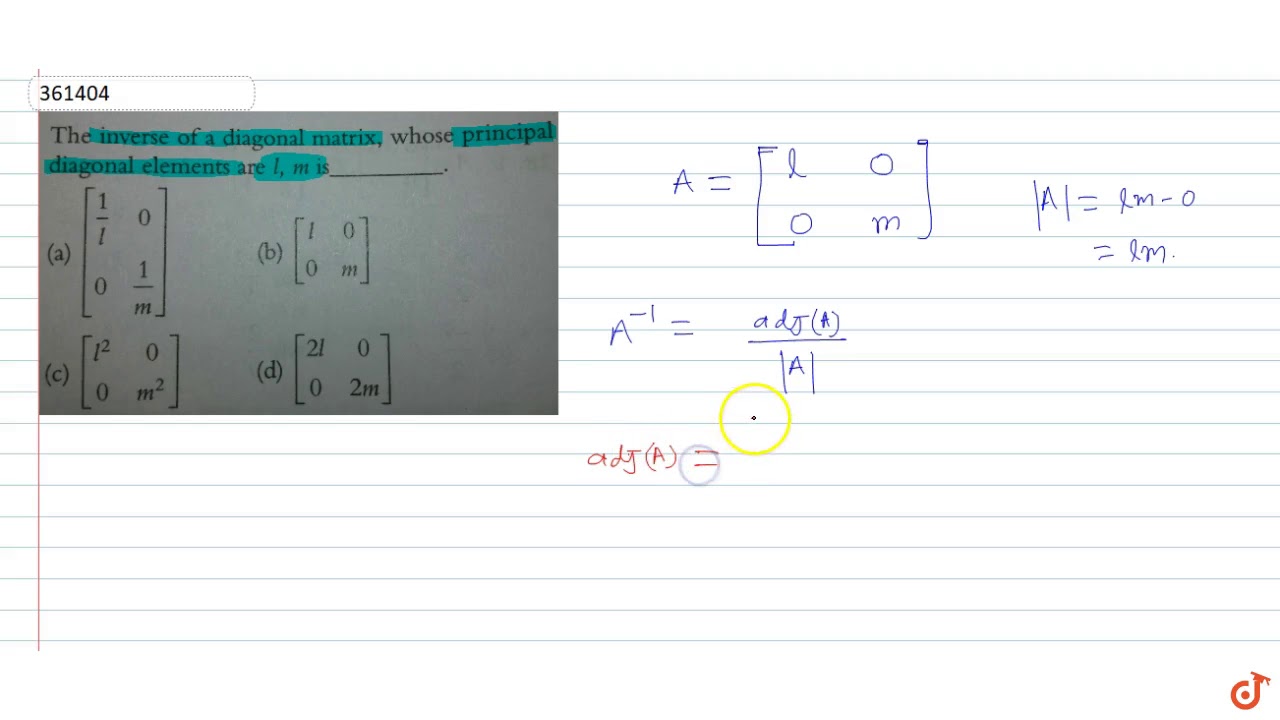 361404
The inverse of a diagonal matrix, whose principal
diagonal elements are l, m is__________.
(a) [1/l 0
0 1/m]
(b) [l 0
0 m]
(c) [l² 0
0 m²]
(d) [2l 0
0 2m]
A = [l 0
0 m]
|A| = lm - 0
= lm.
A⁻¹ = adj(A)
|A|
adj(A) =